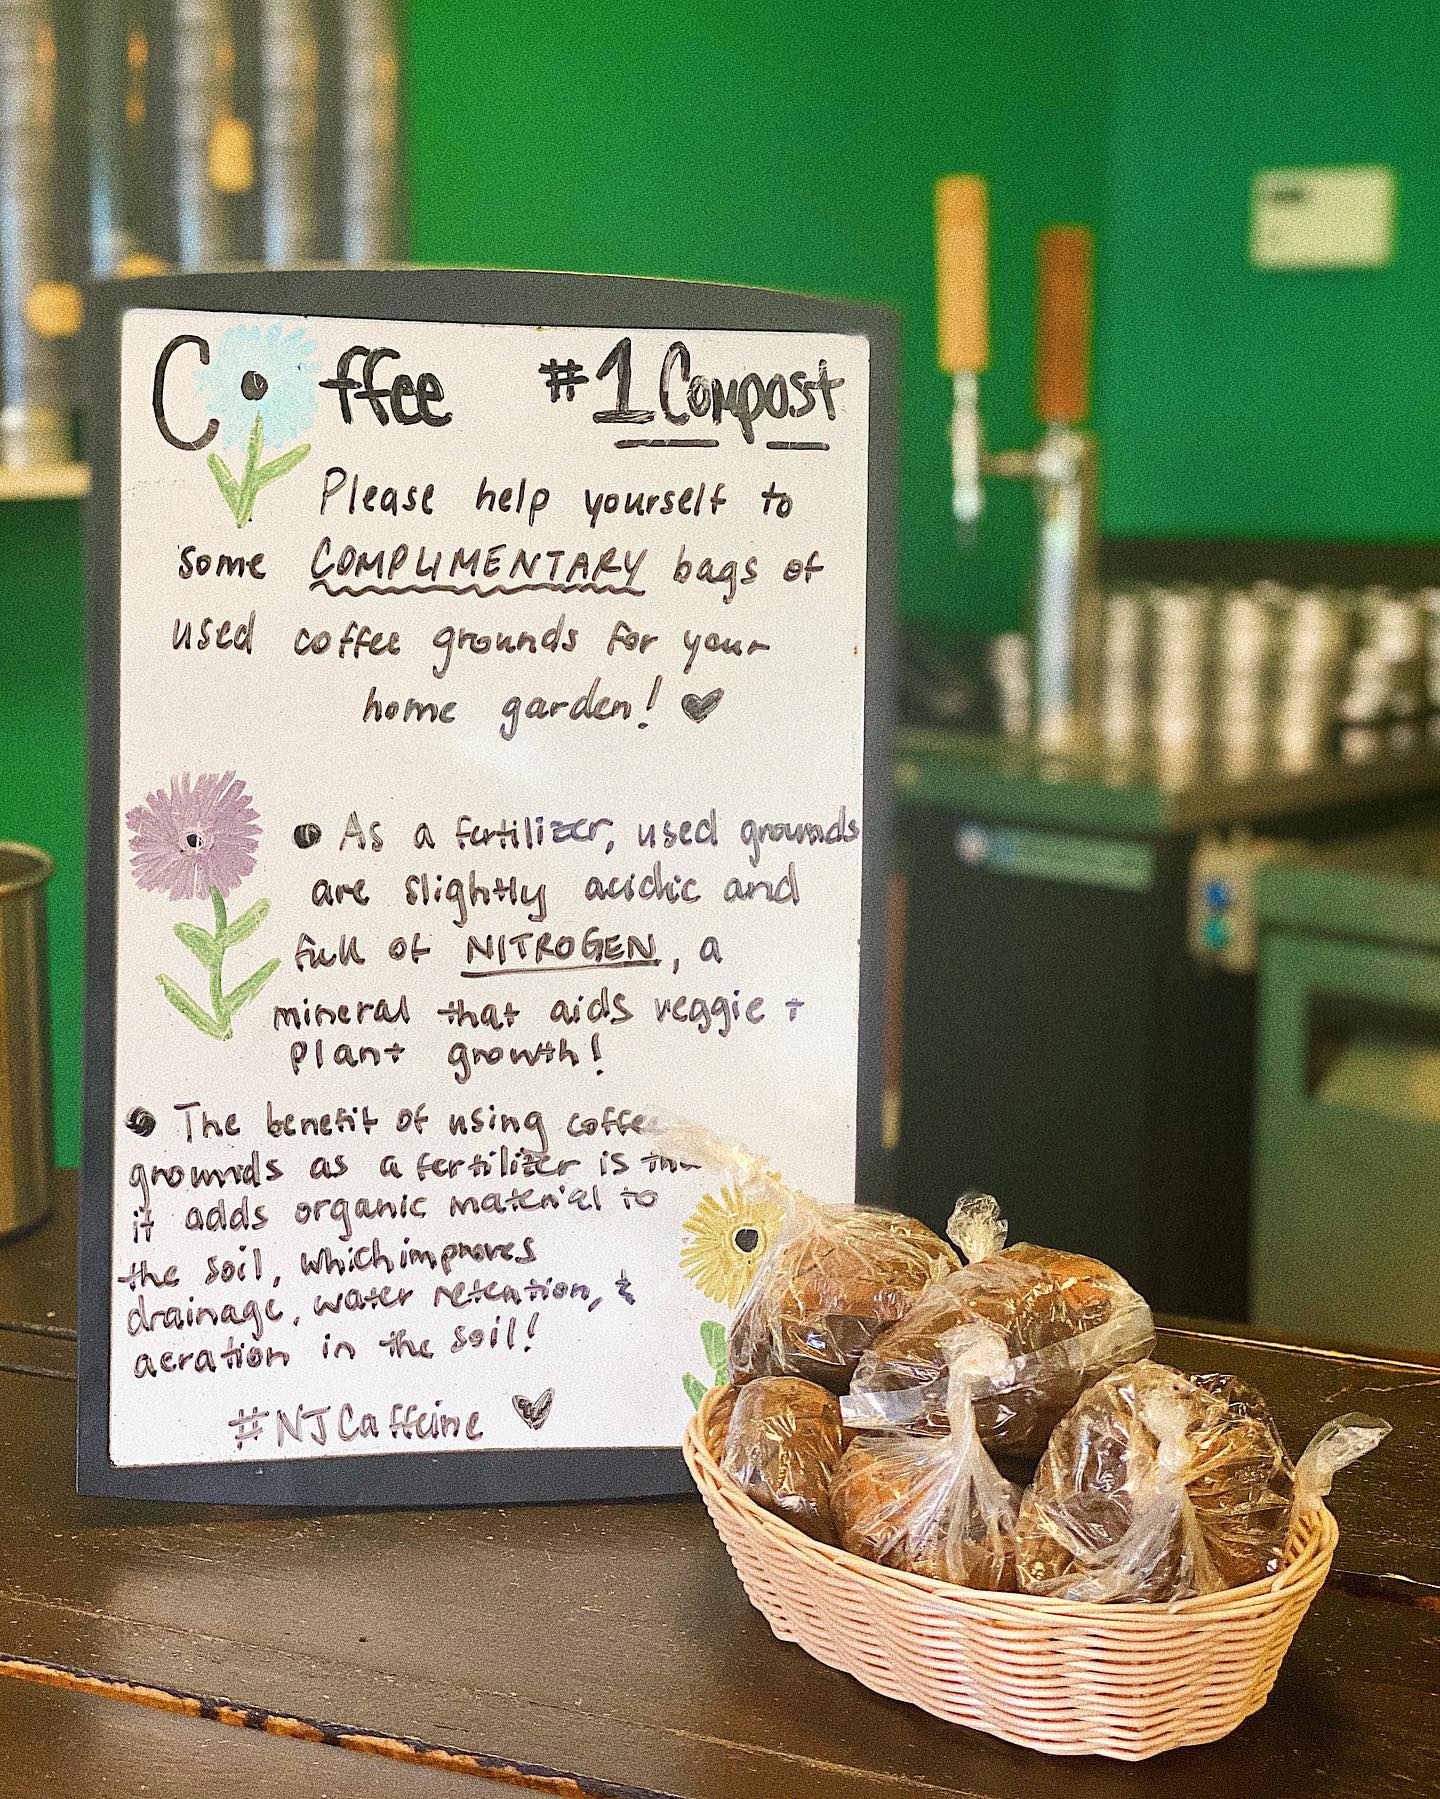 Coffee #1 Compost
Please help yourself to
some COMPLIMENTARY bags of
used coffee grounds for your
home garden!
As a fertilizer, used grounds
are slightly acidic and
full of NITROGEN, a
mineral that aids veggie +
plant growth!
The benefit of using coffee
grounds as a fertilizer is that
it adds organic material to
the soil, which improves
drainage, water retention, &
aeration in the soil!
#NJCaffeine